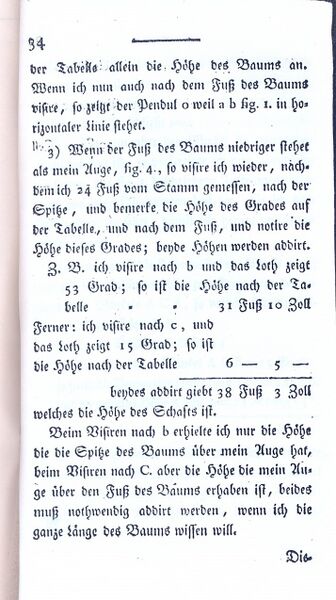 34
der Tabelle allein die Höhe des Baums an.
Wenn ich nun auch nach dem Fuß des Baums
visire, so zeigt der Pendul 0 weil a b fig. 1. in ho-
rizontaler Linie stehet.
3) Wenn der Fuß des Baums niedriger stehet
als mein Auge, fig. 4., so visire ich wieder, nach-
dem ich 24 Fuß vom Stamm gemessen, nach der
Spitze, und bemerke die Höhe des Grades auf
der Tabelle, und nach dem Fuß, und notire die
Höhe dieses Grades; beyde Höhen werden addirt.
Z. B. ich visire nach b und das Loth zeigt
53 Grad; so ist die Höhe nach der Ta-
belle - - 31 Fuß 10 Zoll
Ferner: ich visire nach c, und
das Loth zeigt 15 Grad; so ist
die Höhe nach der Tabelle 6 — 5 —
beydes addirt giebt 38 Fuß 3 Zoll
welches die Höhe des Schafts ist.
Beim Visiren nach b erhielte ich nur die Höhe
die die Spitze des Baums über mein Auge hat,
beim Visiren nach C. aber die Höhe die mein Au-
ge über den Fuß des Baums erhaben ist, beides
muß nothwendig addirt werden, wenn ich die
ganze Länge des Baums wissen will.
Die-